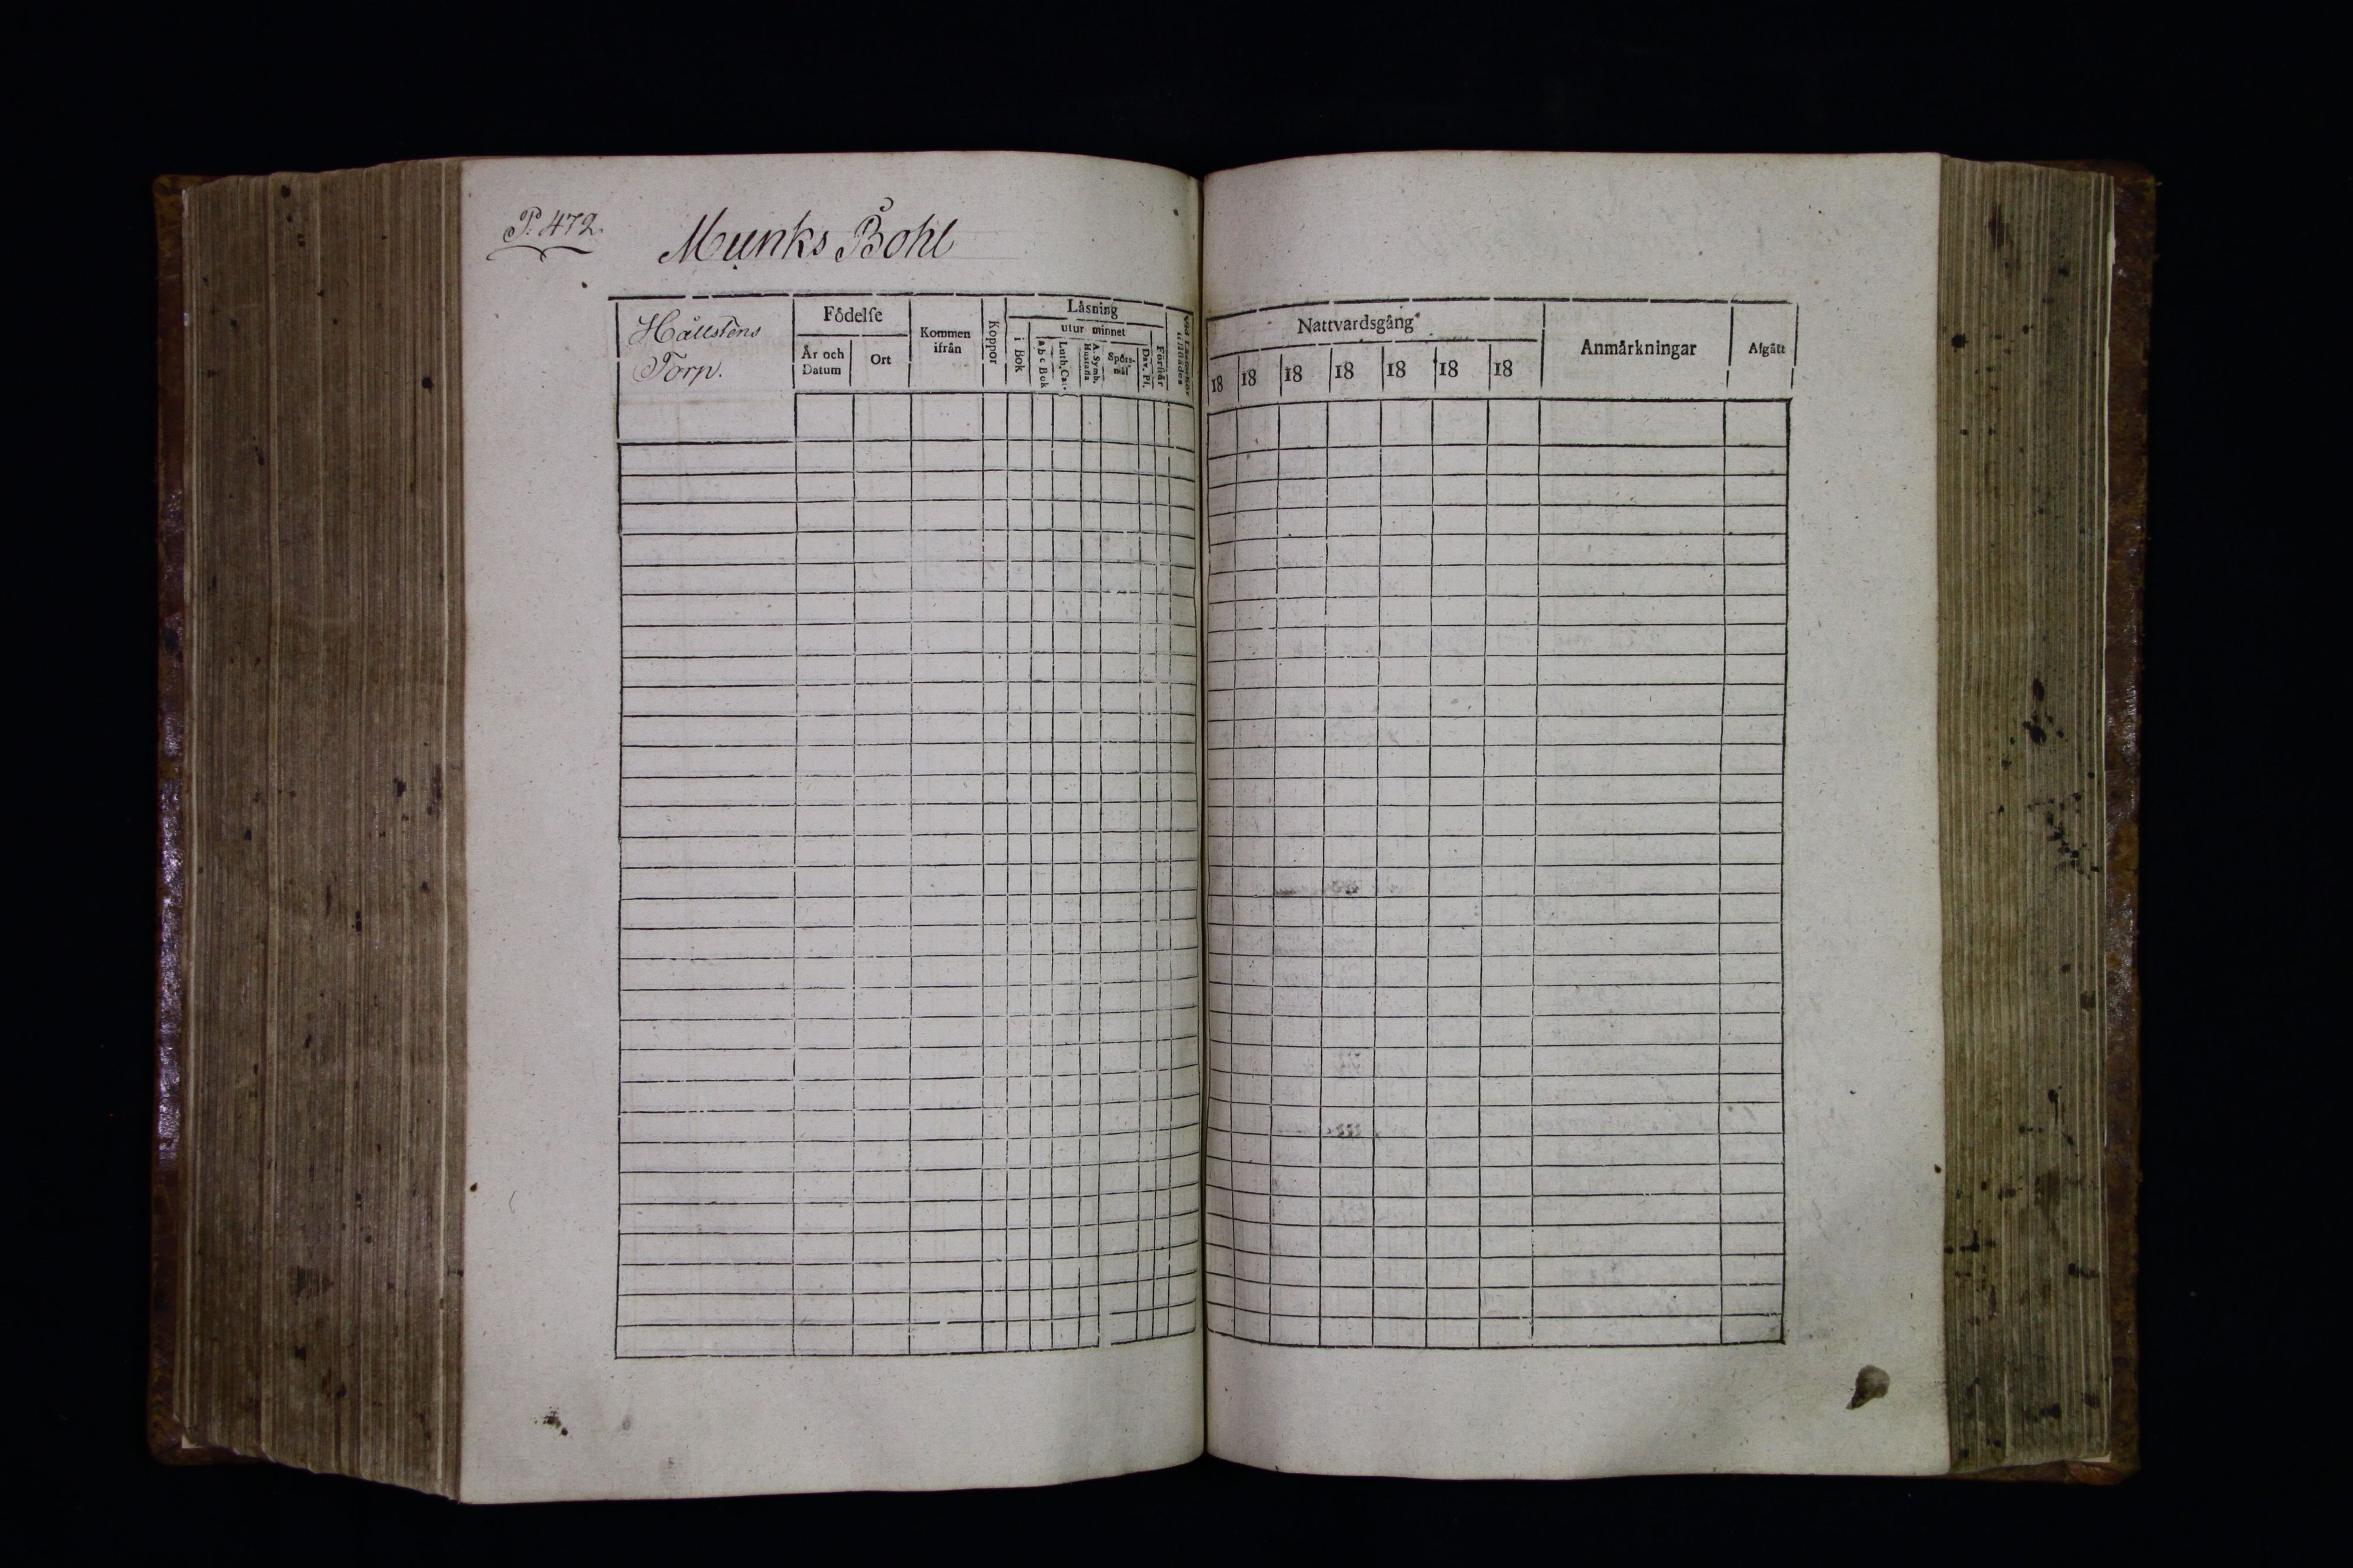 P. 472.
Munks Bohl
Hällstens
Torp.
Födelse
År och
Datum
Ort
Kommen
ifrån
Koppor
Läsning
i Bok
utur minnet
a b c Bok
Luth. Cat.
A. Symb.
Hustafla
Spörs-
mål
Dav. Ps.
Förstår
Nattvardsgång
18 18 18 18 18 18 18
Anmärkningar
Afgått